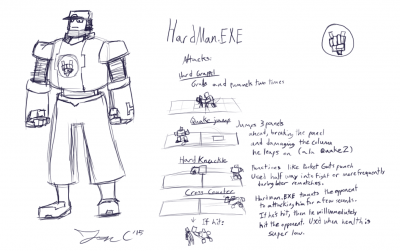 HardMan.EXE
Attacks:
Hard Grapple
Grab and pummels two times
Quake jump
Jumps 3 panels
ahead, breaking the panel
and damaging the column
he leaps on (a.k.a Quake2)
Hard Knuckle
Functions like Rocket Guts punch
Used half way into fight or more frequently
during later rematches.
Cross Counter
HardMan.EXE taunts the opponent
to attacking him for a few seconds.
If hit, then he will immediately
hit the opponent. Used when health is
super low.
↓ If hit:
'15